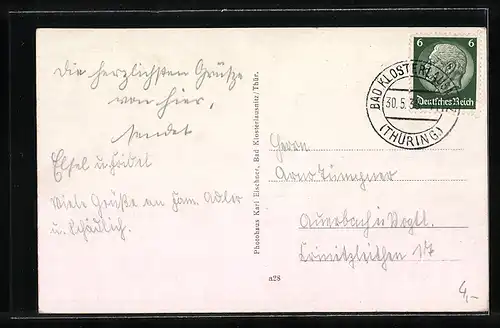 Die herzlichsten Grüße
von hier,
sendet
Elsel u. Fridel
Viele Grüße an Fam. Adler
u. Schädlich.
Photohaus Karl Elschner, Bad Klosterlausnitz/Thür.
a28
6 6
Deutsches Reich
BAD KLOSTERLAUSNITZ
30.5.3
(THÜRING)
Herrn
Arno
Auerbach i/ Vogtl.
4,-